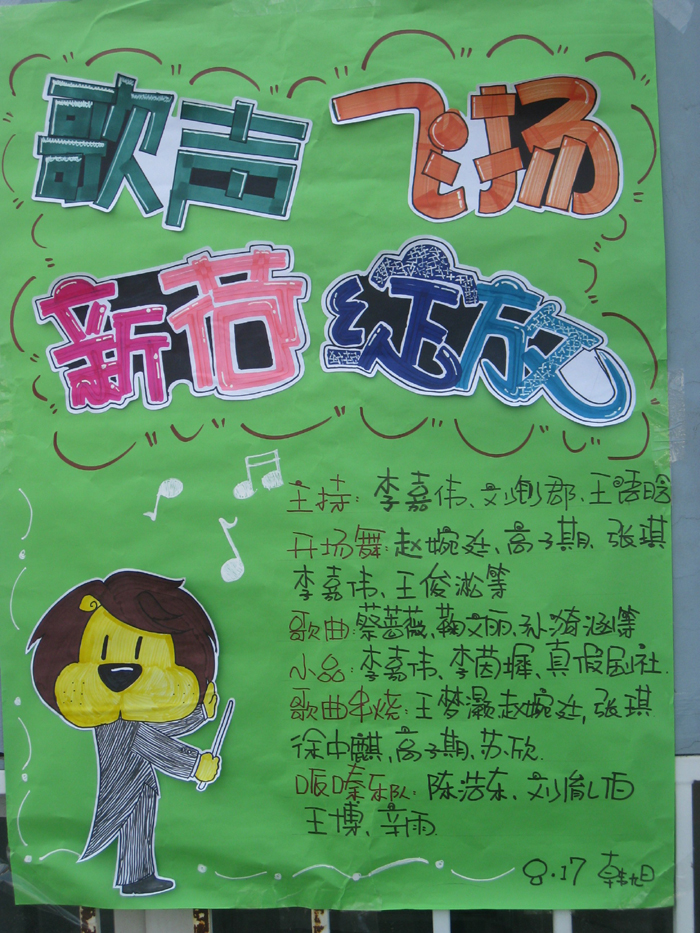 歌声 飞扬
新荷 绽放
主持: 李嘉伟、刘郡、王
开场舞: 赵婉廷、高子期、张琪
李嘉伟、王俊淞等
歌曲: 蔡蔷薇、鞠文丽、孙漪涵等
小品: 李嘉伟、李茵墀、真假剧社.
歌曲串烧: 王梦灏,赵婉廷,张琪
徐中麒、高子期、苏欣.
乐队: 陈浩东、刘胤伯
王博、辛雨.
8.17 韩旭